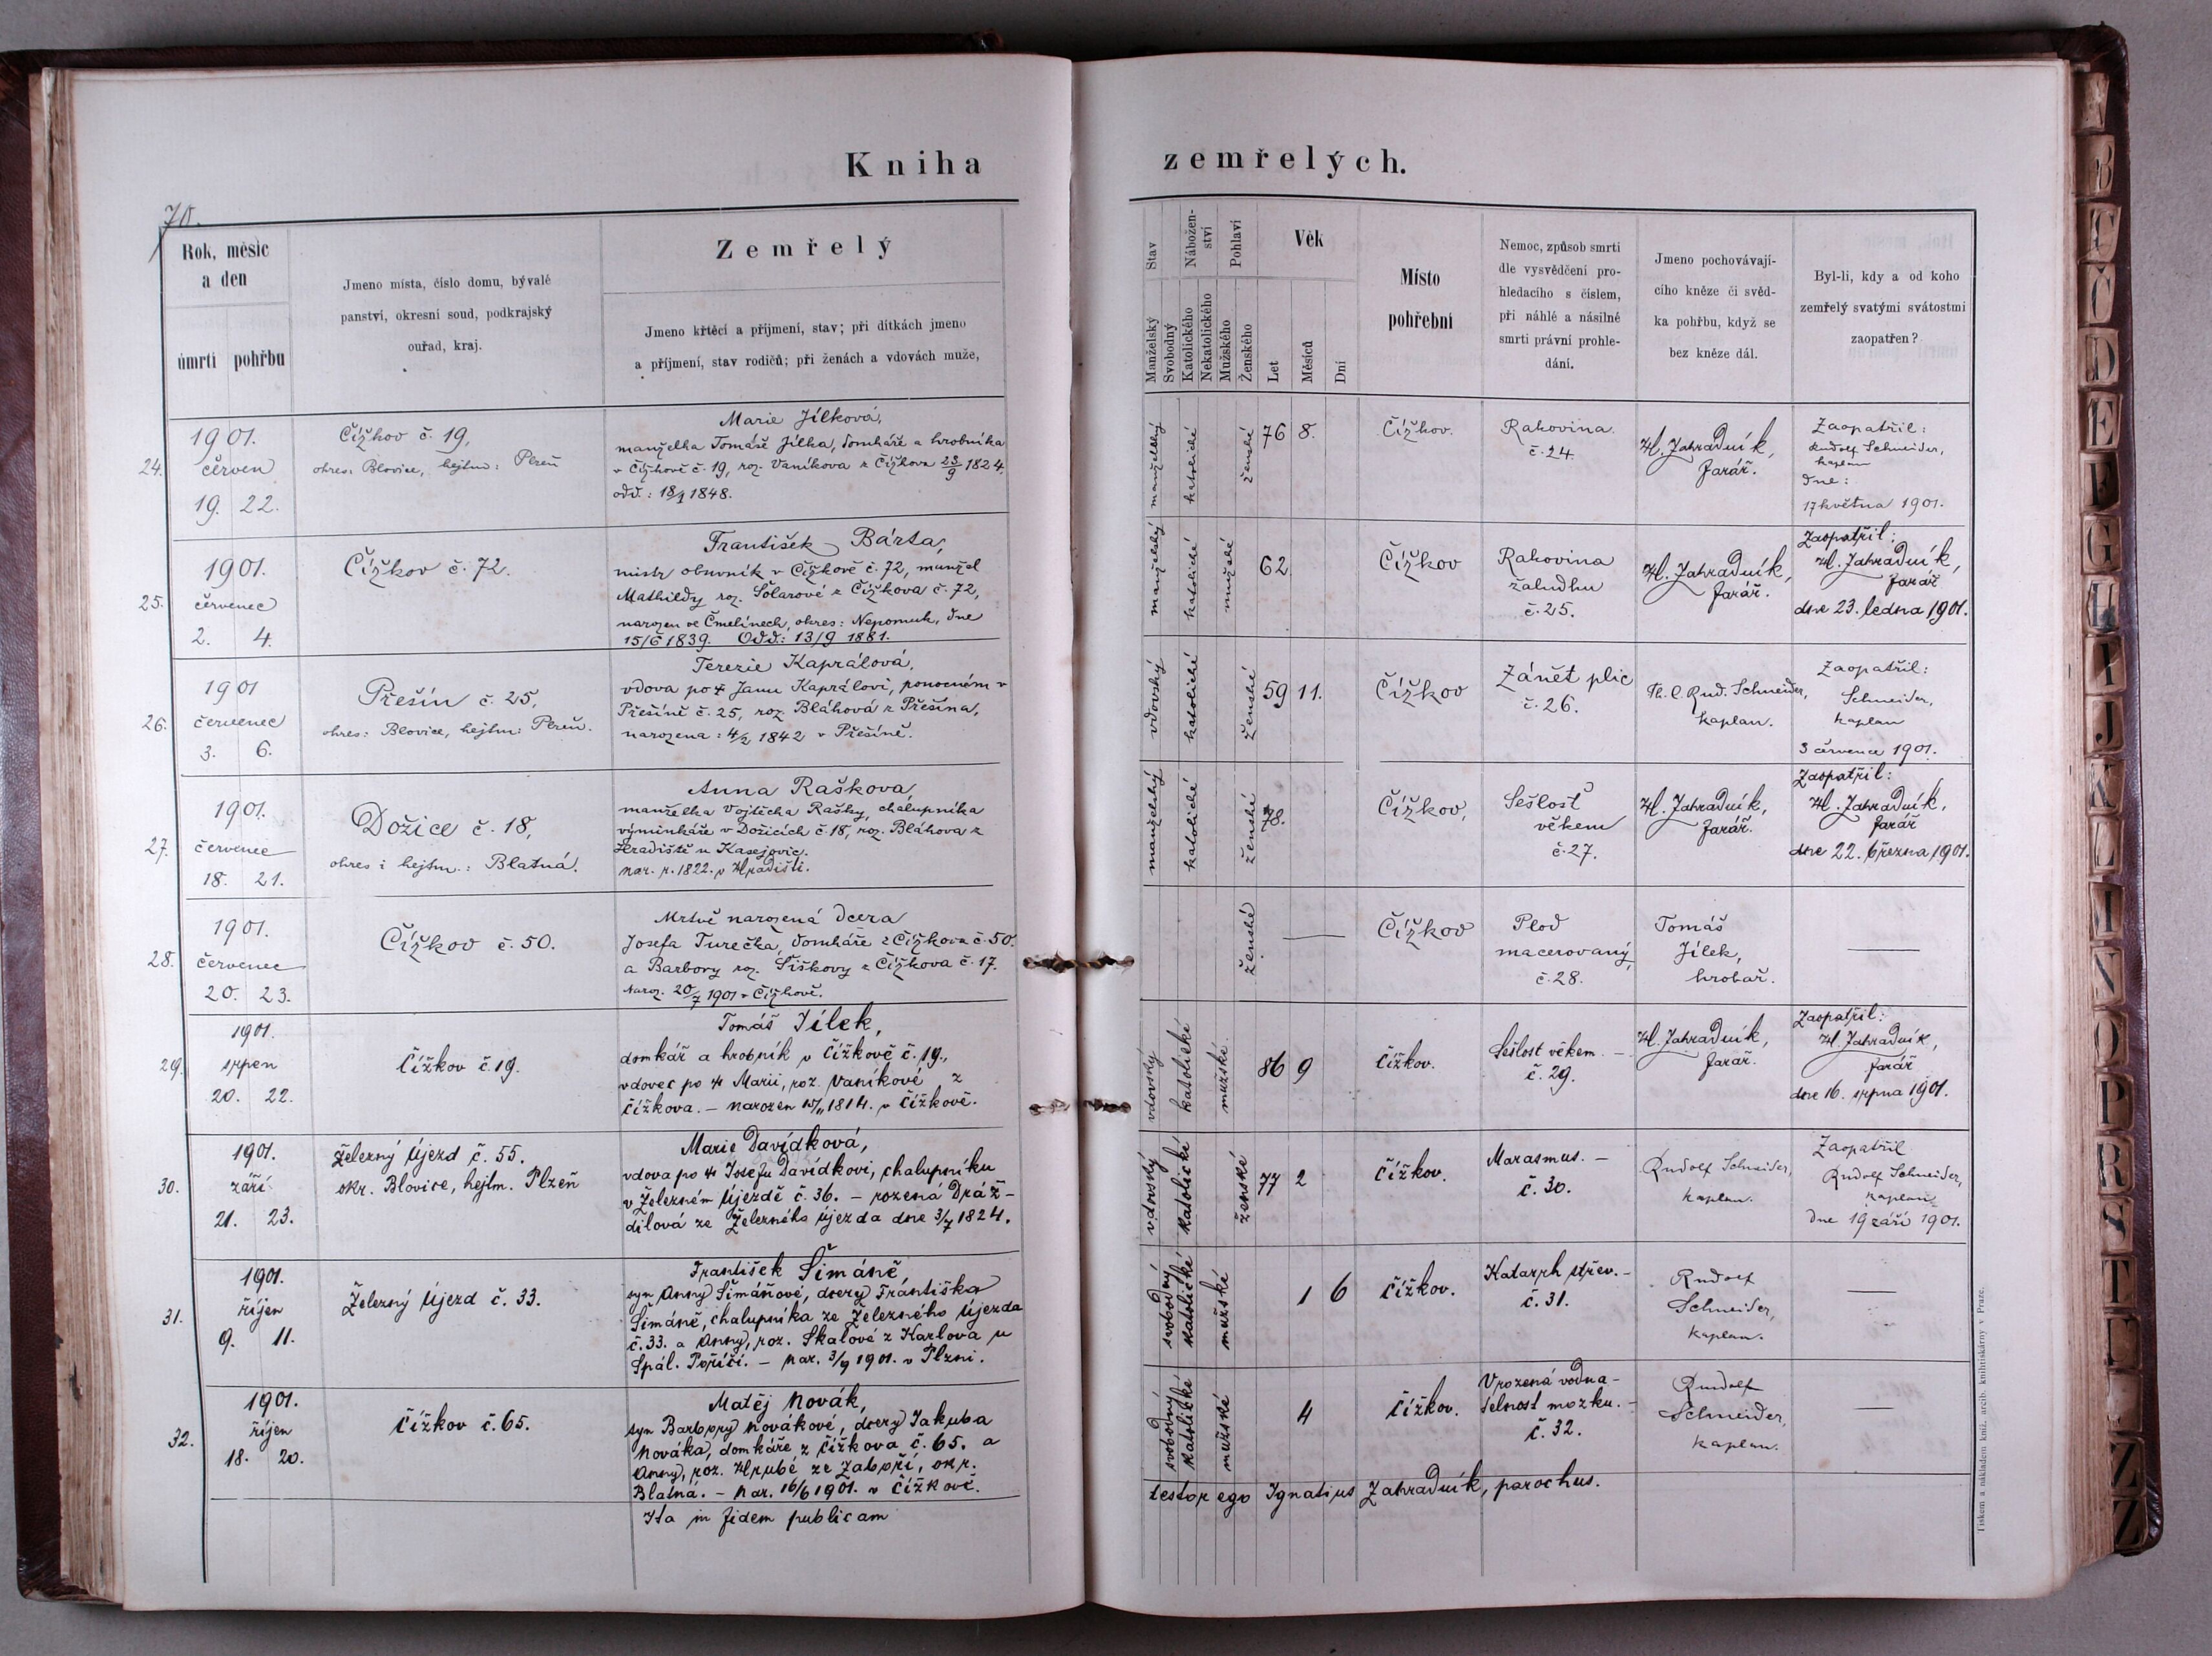 Kniha zemřelých.
70.
Rok, měsíc
a den
úmrtí pohřbu
Jmeno místa, číslo domu, bývalé
panství, okresní soud, podkrajský
ouřad, kraj.
Zemřelý
Jmeno křtěcí a příjmení, stav; při dítkách jmeno
a příjmení, stav rodičů; při ženách a vdovách muže,
Stav
Manželský
Svobodný
Nábožen-
ství
Katolického
Nekatolického
Pohlaví
Mužského
Ženského
Věk
Let
Měsíců
Dní
Místo
pohřební
Nemoc, způsob smrti
dle vysvědčení pro-
hledacího s číslem,
při náhlé a násilné
smrti právní prohle-
dání.
Jmeno pochovávají-
cího kněze či svěd-
ka pohřbu, když se
bez kněze dál.
Byl-li, kdy a od koho
zemřelý svatými svátostmi
zaopatřen?
24.
1901.
červen
19. 22.
Čížkov č. 19,
okres: Blovice, hejtm: Plzeň
Marie Jílková,
manželka Tomáše Jílka, domkáře a hrobníka
v Čížkově č. 19, roz. Vaníkova z Čížkova 23/9 1824,
odd.: 18/1 1848.
manželský
katolické
ženské
76 8.
Čížkov.
Rakovina
č. 24.
H. Zahradník,
farář.
Zaopatřil:
Rudolf Schneider,
kaplan
dne:
17 května 1901.
25.
1901.
červenec
2. 4.
Čížkov č. 72.
František Bárta,
mistr obuvník v Čížkově č. 72, manžel
Mathildy roz. Šolarové z Čížkova č. 72,
narozen ve Čmelínech, okres: Nepomuk, dne
15/6 1839. Odd.: 13/9 1881.
manželský
katolické
mužské
62
Čížkov
Rakovina
žaludku
č. 25.
H. Zahradník,
farář.
Zaopatřil:
H. Zahradník,
farář
dne 23. ledna 1901.
26.
1901
červenec
3. 6.
Přešín č. 25,
okres: Blovice, hejtm: Plzeň.
Terezie Kaprálová,
vdova po Janu Kaprálovi, ponocném v
Přešíně č. 25, roz. Bláhová z Přešína,
narozena: 4/2 1842 v Přešíně.
vdovský
katolické
ženské
59 11.
Čížkov
Zánět plic
č. 26.
Rud. Schneider,
kaplan.
Zaopatřil:
Schneider,
kaplan
3 července 1901.
27.
1901.
červenec
18. 21.
Dožice č. 18,
okres i hejtm.: Blatná.
Anna Raškova,
manželka Vojtěcha Rašky, chalupníka
výminkáře v Dožicích č. 18, roz. Bláhova z
Hradiště u Kasejovic.
nar. r. 1822. v Hradišti.
manželský
katolické
ženské
78.
Čížkov,
Sešlosť
věkem
č. 27.
H. Zahradník,
farář.
Zaopatřil:
H. Zahradník,
farář
dne 22. března 1901.
28.
1901.
červenec
20. 23.
Čížkov č. 50.
Mrtvě narozená dcera
Josefa Turečka, domkáře z Čížkova č. 50.
a Barbory roz. Šiškovy z Čížkova č. 17.
Naroz. 20/7 1901 v Čížkově.
ženské
—
Čížkov
Plod
macerovaný,
č. 28.
Tomáš
Jílek,
hrobař.
—
29.
1901.
srpen
20. 22.
Čížkov č. 19.
Tomáš Jílek,
domkář a hrobník v Čížkově č. 19.,
vdovec po Marii, roz. Vaníkové z
Čížkova. – narozen 1814. v Čížkově.
vdovský
katolické
mužské.
86 9
Čížkov.
Sešlost věkem. –
č. 29.
H. Zahradník,
farář.
Zaopatřil:
H. Zahradník,
farář
dne 16. srpna 1901.
30.
1901.
září
21. 23.
Železný Újezd č. 55.
okr. Blovice, hejtm. Plzeň
Marie Davídková,
vdova po Josefu Davídkovi, chalupníku
v Železném Újezdě č. 36. – rozená Dráž-
dilová ze Železného Újezda dne 3/7 1824.
vdovský
katolické
ženské
77 2
Čížkov.
Marasmus. –
č. 30.
Rudolf Schneider,
kaplan.
Zaopatřil
Rudolf Schneider,
kaplan
dne 19 září 1901.
31.
1901.
říjen
9. 11.
Železný Újezd č. 33.
František Šimáně,
syn Anny Šimáňové, dcery Františka
Šimáně, chalupníka ze Železného Újezda
č. 33. a Anny, roz. Skalové z Karlova u
Spál. Poříčí. – nar. 3/9 1901. v Plzni.
svobodný
katolické
mužské
1 6
Čížkov.
Katarrh střev. –
č. 31.
Rudolf
Schneider,
kaplan.
—
32.
1901.
říjen
18. 20.
Čížkov č. 65.
Matěj Novák,
syn Barbory Novákové, dcery Jakuba
Nováka, domkáře z Čížkova č. 65. a
Anny, roz. Hrubé ze Záboří, okr.
Blatná. – nar. 16/6 1901. v Čížkově.
svobodný
katolické
mužské
4
Čížkov.
Vrozená vodna-
telnost mozku. –
č. 32.
Rudolf
Schneider,
kaplan.
—
Ita in fidem publicam testor ego Ignatius Zahradník, parochus.
Tiskem a nákladem kníž. arcib. knihtiskárny v Praze.
B
C
Č
D
E
F
G
H
I
J
K
L
M
N
O
P
R
S
T
U
Z
Ž